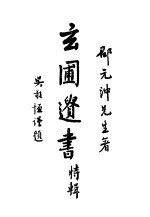 邵元沖先生著
玄圃遺書
特輯
吳敬恆謹題